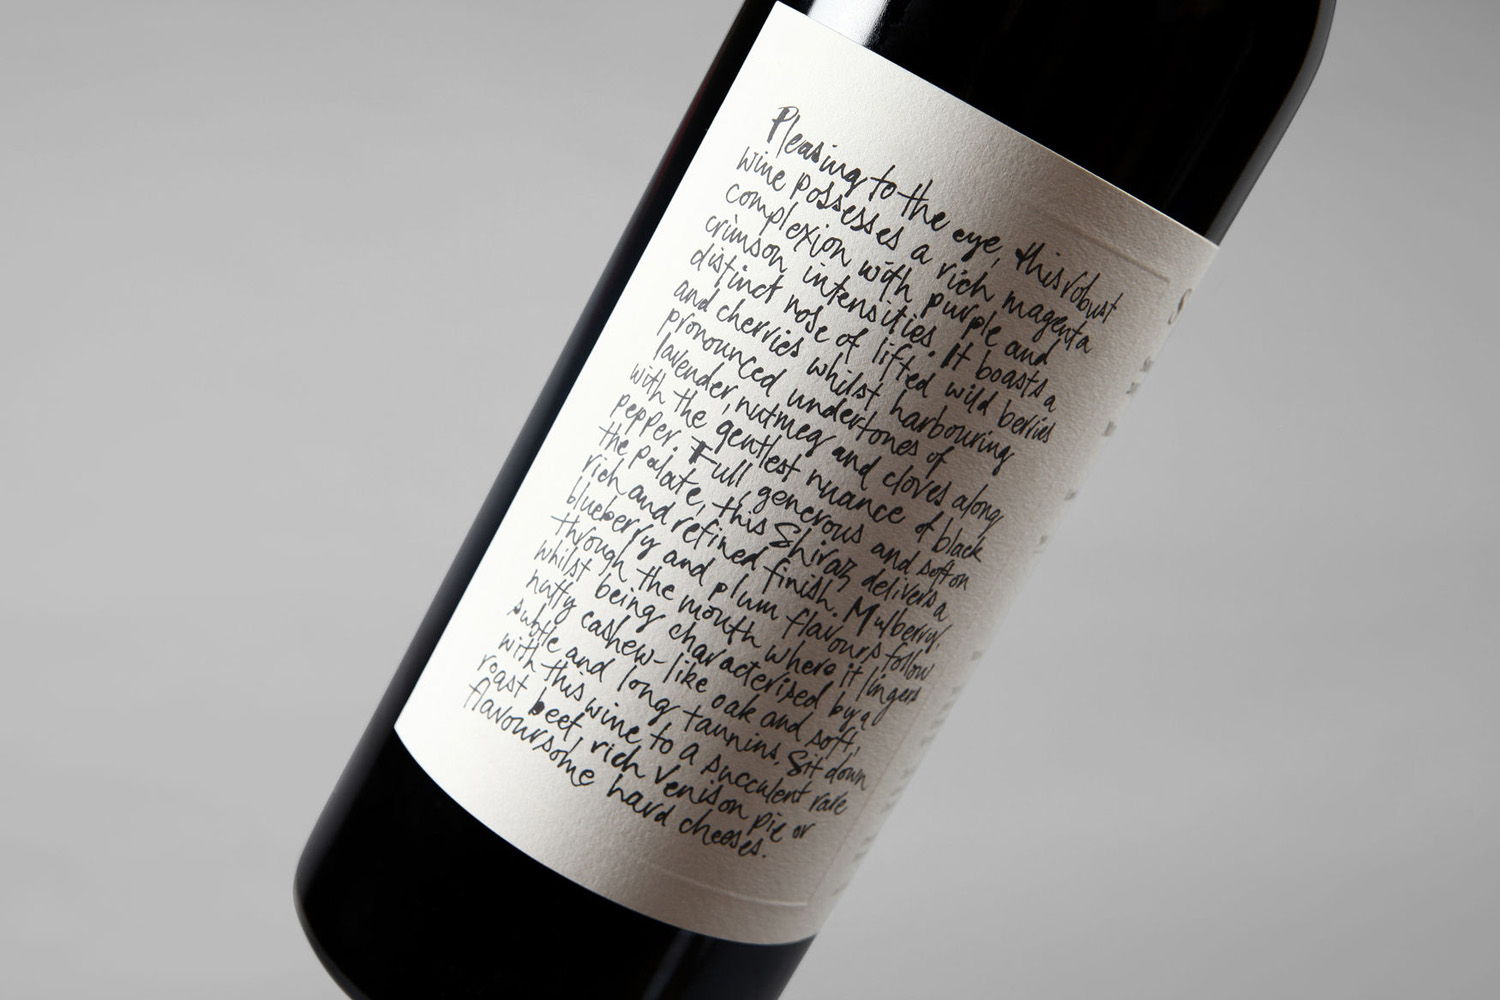 Pleasing to the eye, this robust
wine possesses a rich magenta
complexion with purple and
crimson intensities. It boasts a
distinct nose of lifted wild berries
and cherries whilst harbouring
pronounced undertones of
lavender, nutmeg and cloves along
with the gentlest nuance of black
pepper. Full generous and soft on
the palate, this Shiraz delivers a
rich and refined finish. Mulberry,
blueberry and plum flavours follow
through the mouth where it lingers
whilst being characterised by a
nutty cashew-like oak and soft,
subtle and long tannins. Sit down
with this wine to a succulent rare
roast beef, rich venison pie or
flavoursome hard cheeses.